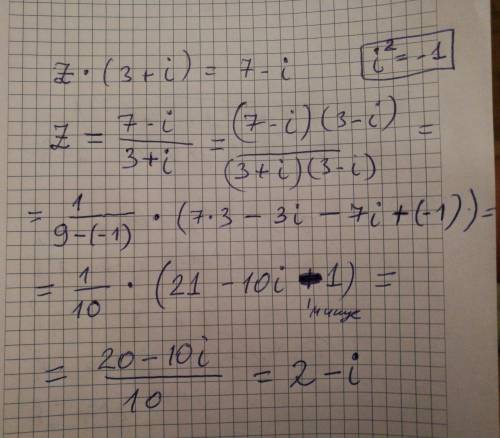 z · (3+i) = 7-i   i² = -1
z = \frac{7-i}{3+i} = \frac{(7-i)(3-i)}{(3+i)(3-i)} =
= \frac{1}{9-(-1)} · (7·3 - 3i - 7i + (-1)) =
= \frac{1}{10} · (21 - 10i - 1) =
минус
= \frac{20-10i}{10} = 2-i